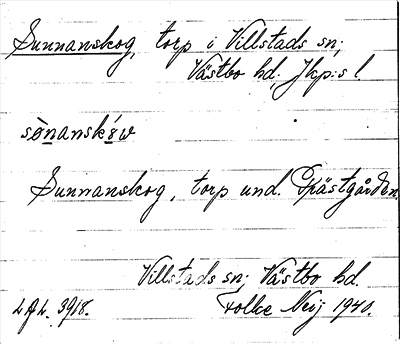 Sunnanskog, torp i Villstads sn;
Västbo hd. Jkp:s l.
sònanskóv
Sunnanskog, torp und. Prästgården.
Villstads sn; Västbo hd.
LAL. 3918. Folke Neij 1940.